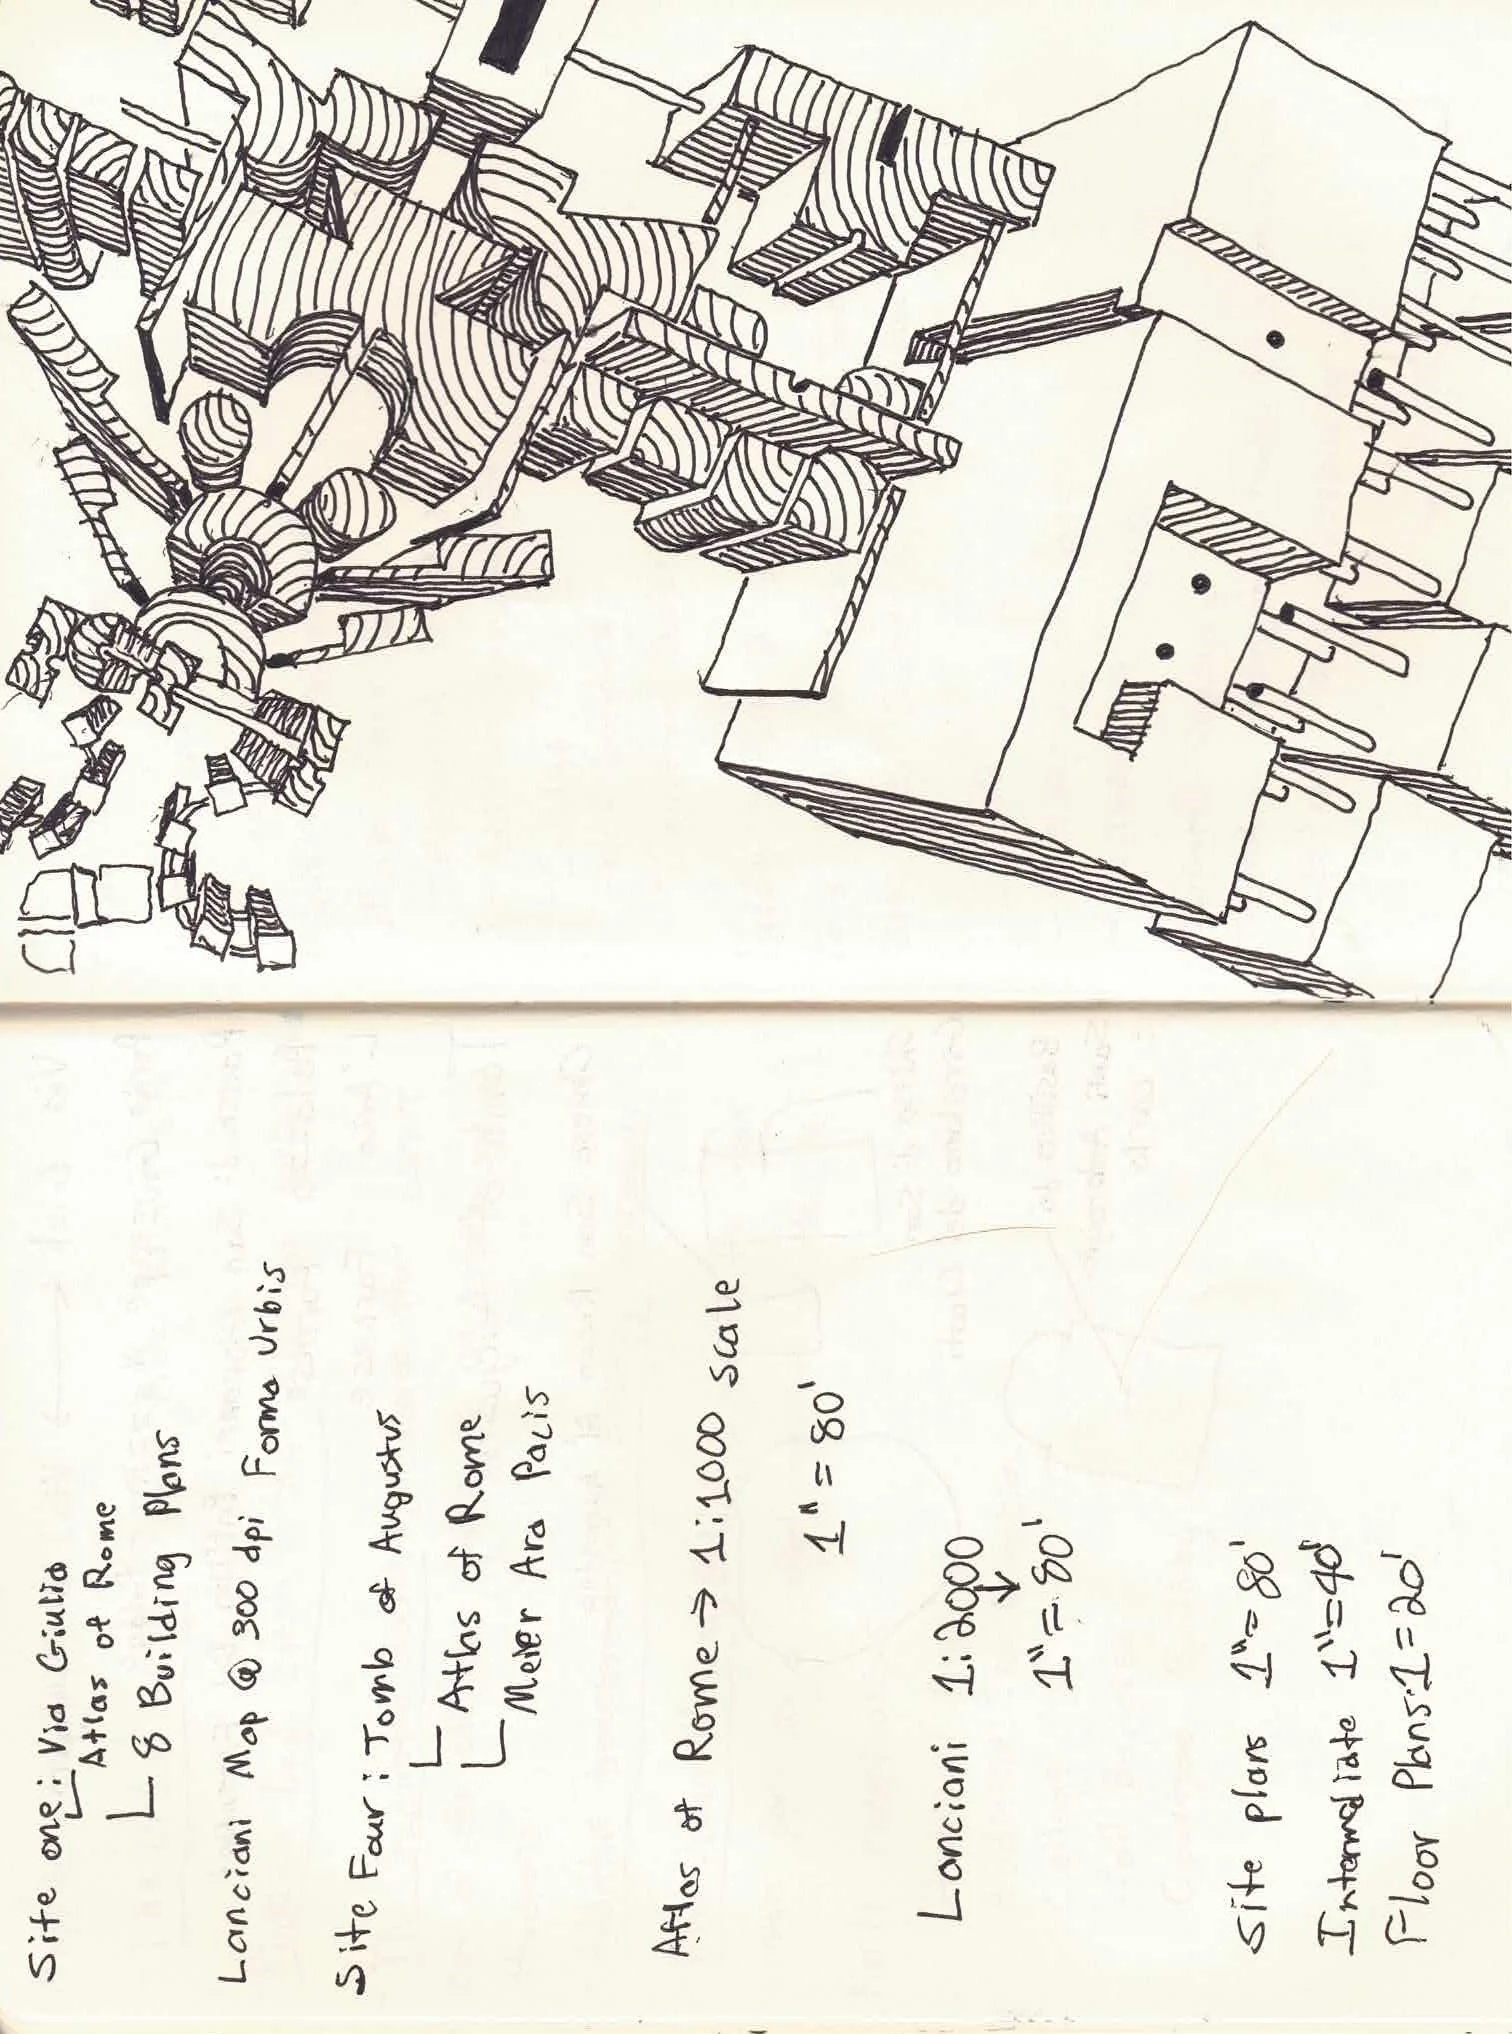 Site one: Via Giulia
Atlas of Rome
8 Building Plans
Lanciani Map @ 300 dpi Forma Urbis
Site Four: Tomb of Augustus
Atlas of Rome
Meier Ara Pacis
Atlas of Rome → 1:1000 scale
1" = 80'
Lanciani 1:2000
↓
1" = 80'
Site plans 1" = 80'
Intermediate 1" = 40'
Floor Plans: 1 = 20'